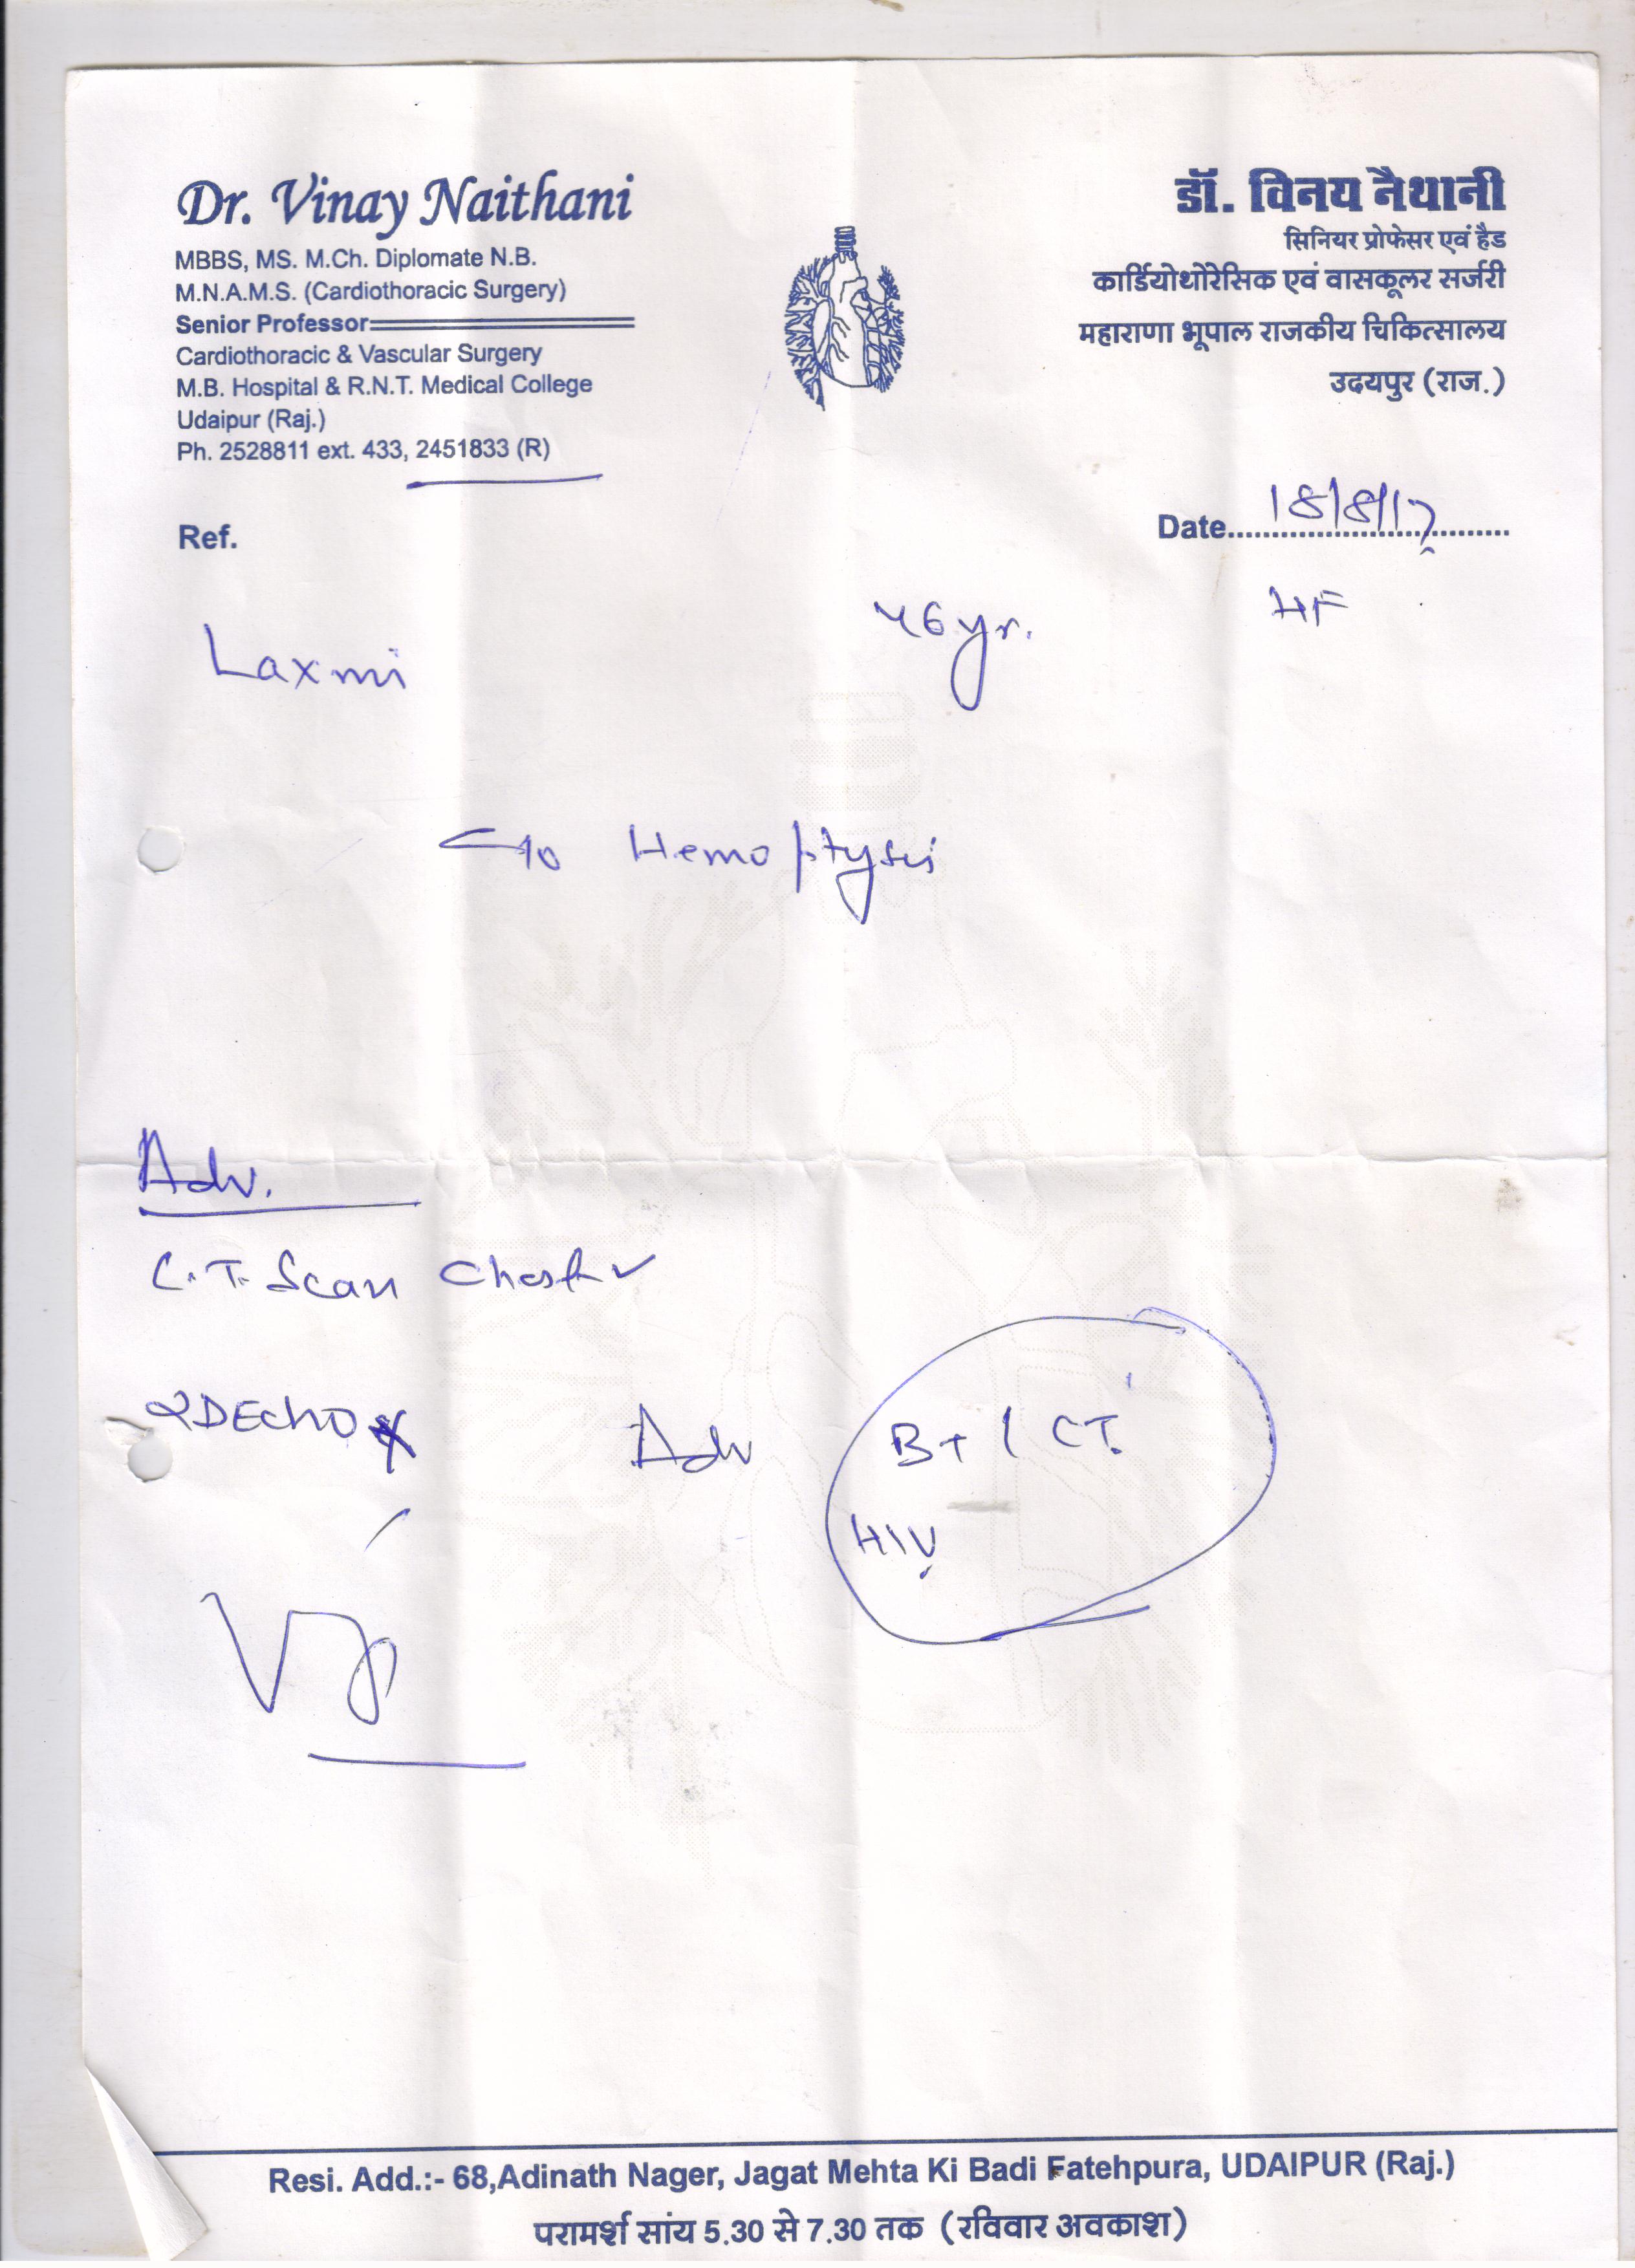 Dr. Vinay Naithani
MBBS, MS. M.Ch. Diplomate N.B.
M.N.A.M.S. (Cardiothoracic Surgery)
Senior Professor
Cardiothoracic & Vascular Surgery
M.B. Hospital & R.N.T. Medical College
Udaipur (Raj.)
Ph. 2528811 ext. 433, 2451833 (R)
डॉ. विनय नैथानी
सिनियर प्रोफेसर एवं हैड
कार्डियोथोरेसिक एवं वासकूलर सर्जरी
महाराणा भूपाल राजकीय चिकित्सालय
उदयपुर (राज.)
Ref.
Date 18/8/17
Laxmi 46 yr. HF
C/o Hemoptysis
Adv.
C.T. Scan Chest ✓
2DEcho
Adv BT / CT.
HIV
Resi. Add.:- 68,Adinath Nager, Jagat Mehta Ki Badi Fatehpura, UDAIPUR (Raj.)
परामर्श सांय 5.30 से 7.30 तक (रविवार अवकाश)